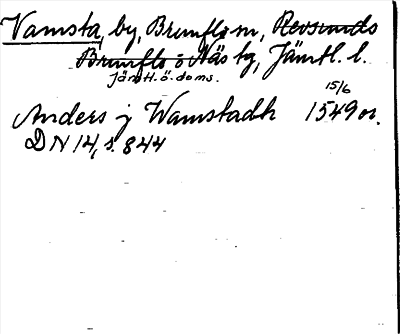 Vamsta, by, Brunflo sn, Revsunds
Brunflo o Näs tg, Jämtl. l.
Jämtl. ö. doms.
Anders j Wamstadh 15/6 1549 or.
DN 14, s. 844